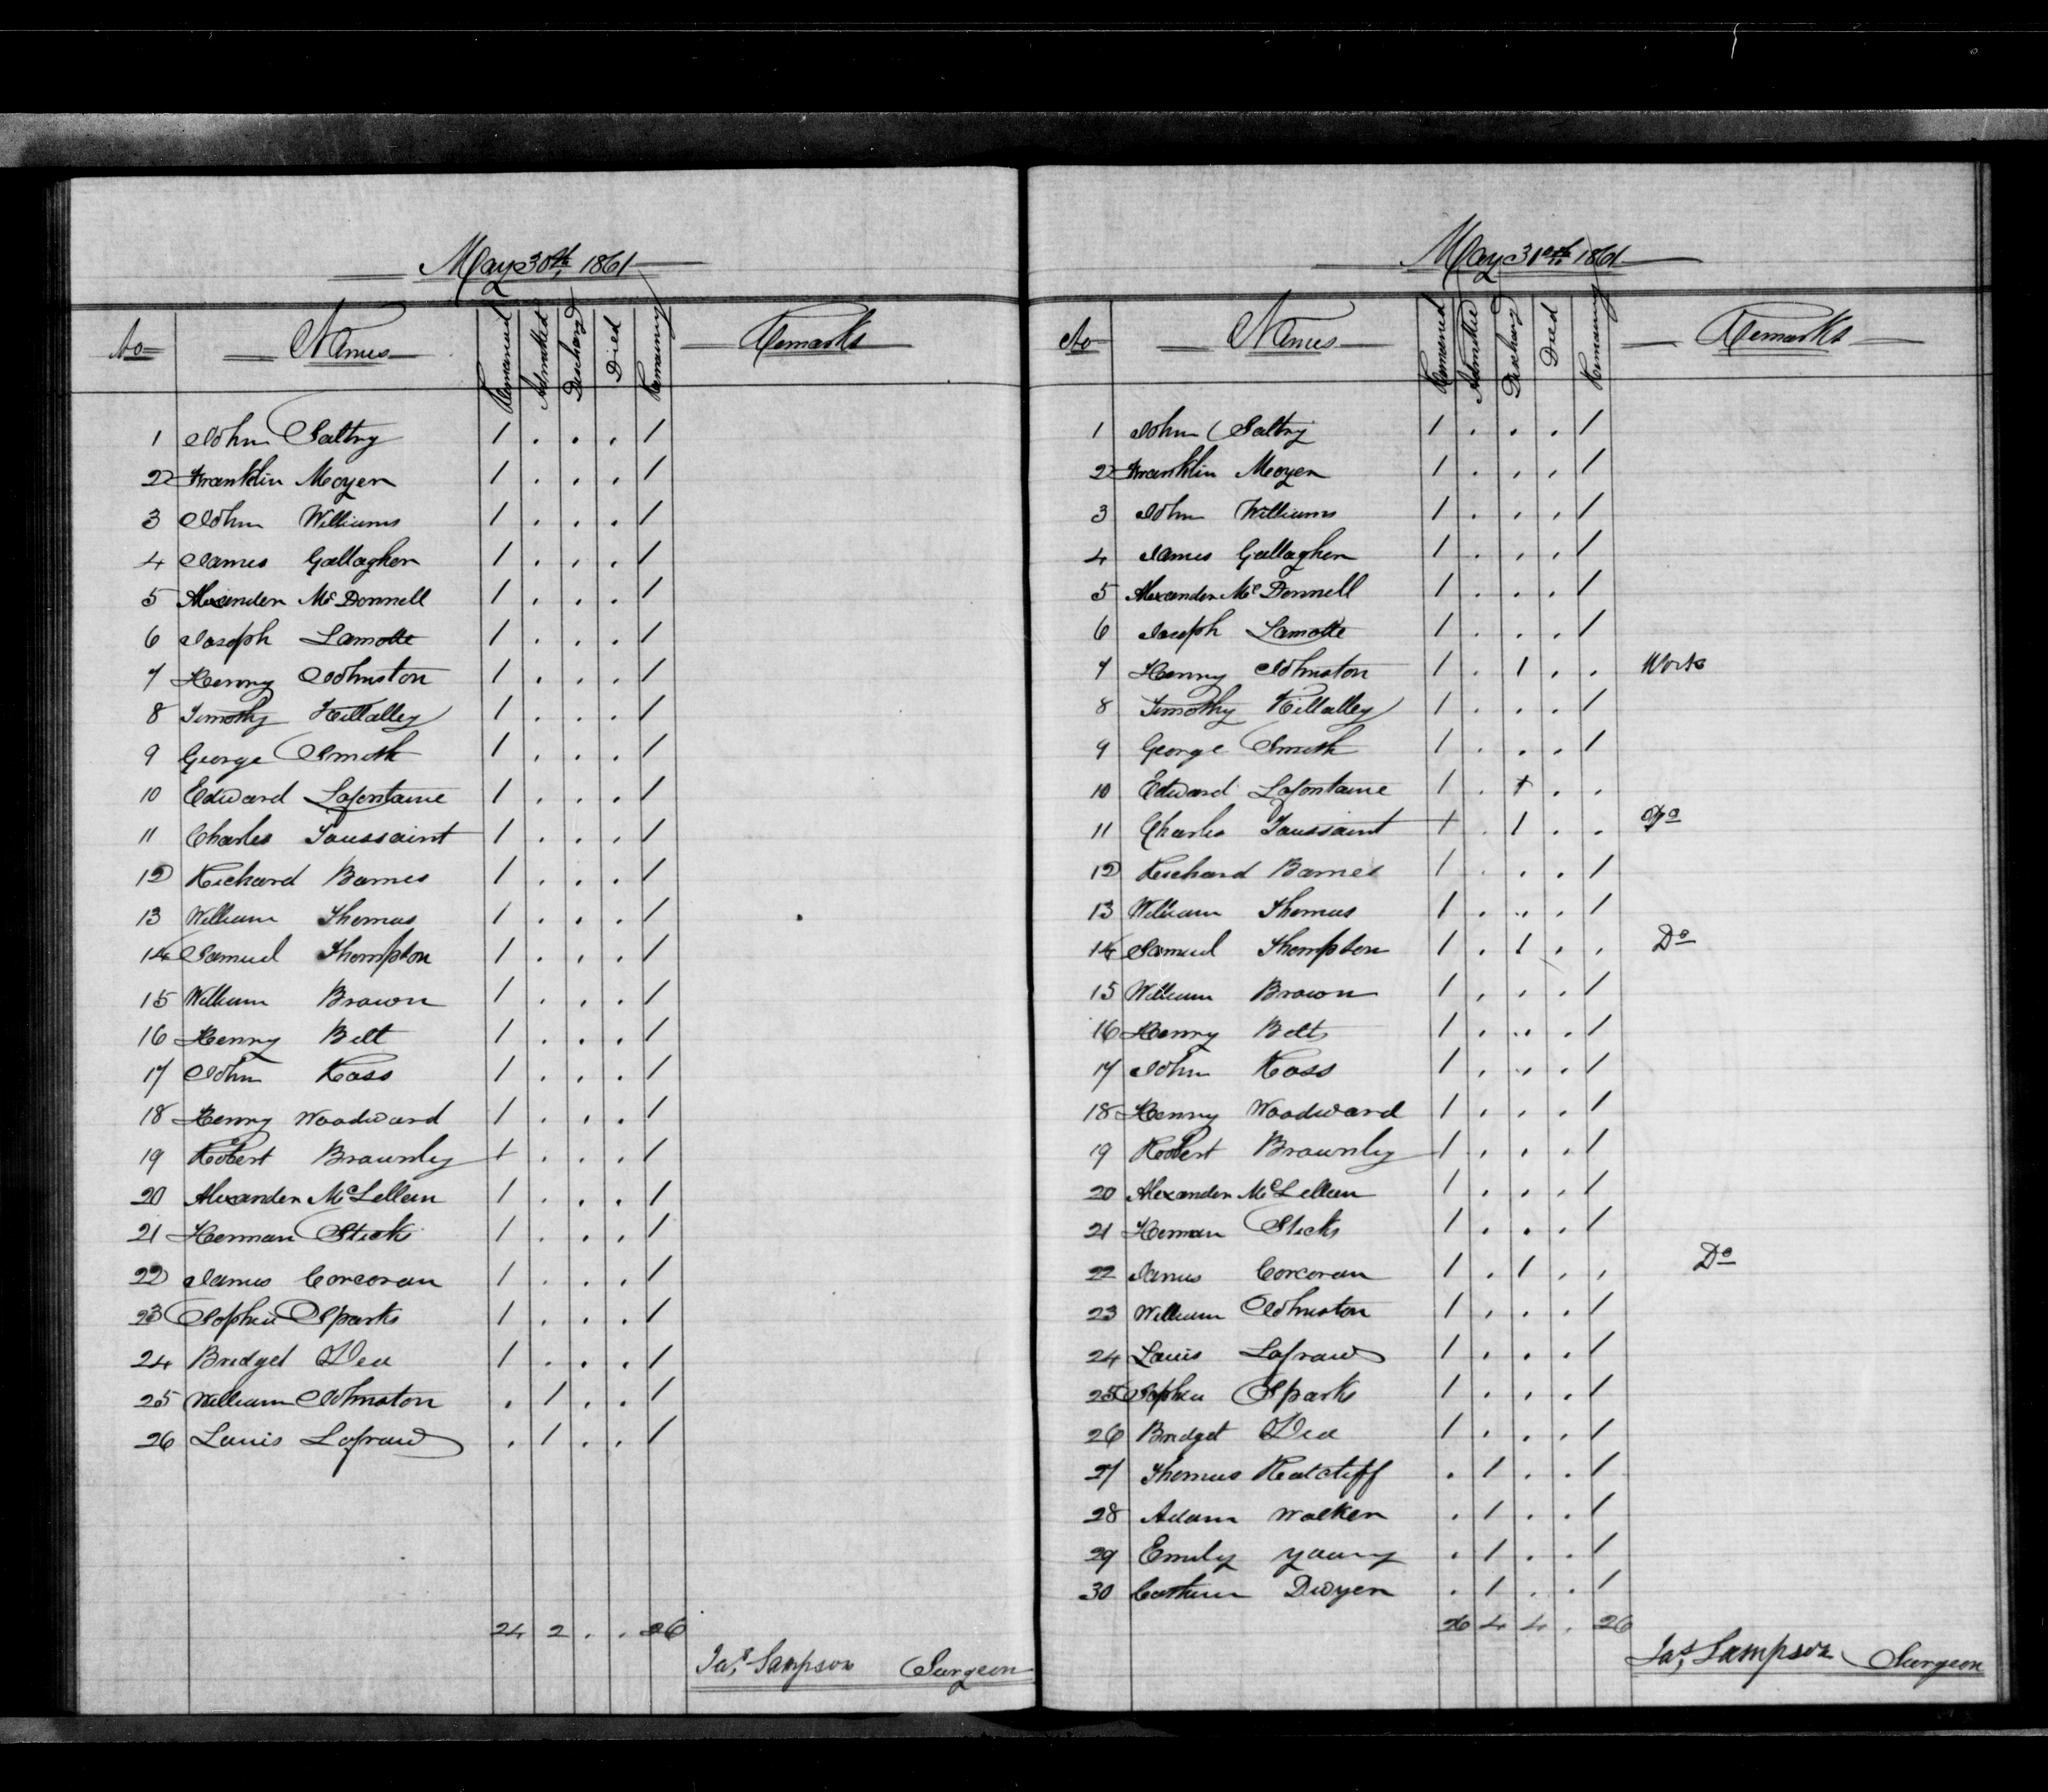 May 30th, 1861
No Names Remained Admitted Discharg Died Remaining Remarks
1 John Saltry 1 . . . 1
2 Franklin Moyer 1 . . . 1
3 John Williams 1 . . . 1
4 James Gallagher 1 . . . 1
5 Alexander McDonnell 1 . . . 1
6 Joseph Lamotte 1 . . . 1
7 Henry Johnston 1 . . . 1
8 Timothy Killalley 1 . . . 1
9 George Smith 1 . . . 1
10 Edward Lafontaine 1 . . . 1
11 Charles Toussaint 1 . . . 1
12 Richard Barnes 1 . . . 1
13 William Thomas 1 . . . 1
14 Samuel Thompson 1 . . . 1
15 William Brown 1 . . . 1
16 Henry Belt 1 . . . 1
17 John Ross 1 . . . 1
18 Henry Woodward 1 . . . 1
19 Robert Brownly 1 . . . 1
20 Alexander McLellan 1 . . . 1
21 Herman Sticks 1 . . . 1
22 James Corcoran 1 . . . 1
23 Sophia Sparks 1 . . . 1
24 Bridget Dea 1 . . . 1
25 William Johnston . 1 . . 1
26 Louis Lafraud . 1 . . 1
24 2 . . 26
Jas. Sampson Surgeon
May 31st 1861
No Names Remained Admitted Discharg Died Remaining Remarks
1 John Saltry 1 . . . 1
2 Franklin Moyer 1 . . . 1
3 John Williams 1 . . . 1
4 James Gallagher 1 . . . 1
5 Alexander McDonnell 1 . . . 1
6 Joseph Lamotte 1 . . . 1
7 Henry Johnston 1 . 1 . . Work
8 Timothy Killalley 1 . . . 1
9 George Smith 1 . . . 1
10 Edward Lafontaine 1 . 1 . .
11 Charles Toussaint 1 . 1 . . Do
12 Richard Barnes 1 . . . 1
13 William Thomas 1 . . . 1
14 Samuel Thompson 1 . 1 . . Do
15 William Brown 1 . . . 1
16 Henry Belt 1 . . . 1
17 John Ross 1 . . . 1
18 Henry Woodward 1 . . . 1
19 Robert Brownly 1 . . . 1
20 Alexander McLellan 1 . . . 1
21 Herman Sticks 1 . . . 1
22 James Corcoran 1 . 1 . . Do
23 William Johnston 1 . . . 1
24 Louis Lafraud 1 . . . 1
25 Sophia Sparks 1 . . . 1
26 Bridget Dea 1 . . . 1
27 Thomas Ratcliff . 1 . . 1
28 Adam Walker . 1 . . 1
29 Emily Young . 1 . . 1
30 Cathrin Dwyer . 1 . . 1
26 4 4 . 26
Jas. Sampson Surgeon